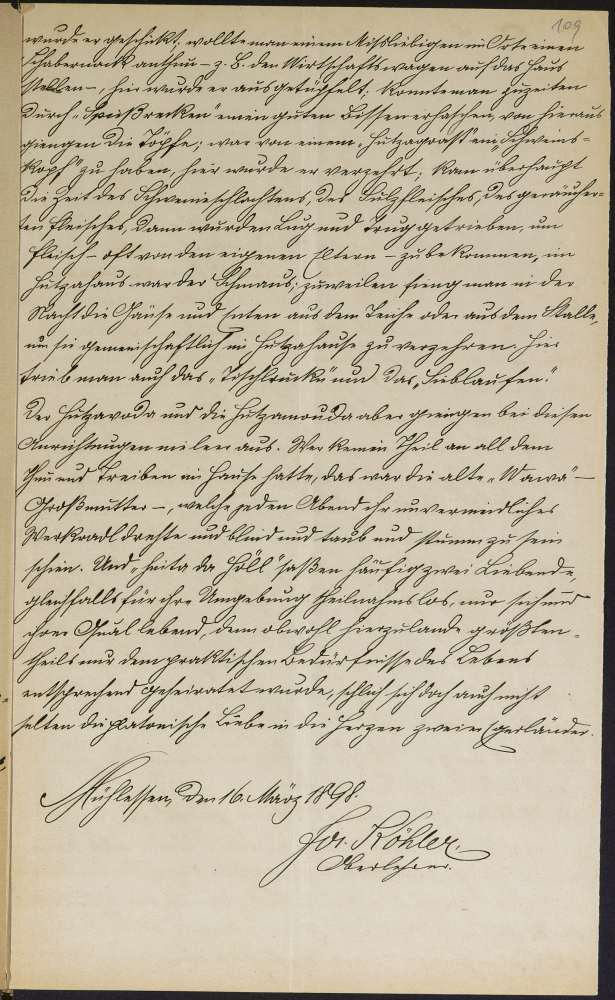 109
wurde er geschickt; wollte man einem Missliebigen im Orte einen
Schabernack anthun – z. B. den Wirtschaftswagen auf das Haus
stellen –, hier wurde er ausgetüpfelt; konnte man zuzeiten
durch „Spießrecken" einen guten Bissen erhaschen, von hier aus
giengen die Töpfe; war von einem „Hutzagrass" ein „Schweins-
kopf" zu haben, hier wurde er verzehrt; kam überhaupt
die Zeit des Schweineschlachtens, des Sulzfleisches, des geräucher-
ten Fleisches, dann wurden Lug und Trug getrieben, um
Fleisch – oft von den eigenen Eltern – zu bekommen, im
Hutzahaus war der Schmaus; zuweilen fieng man in der
Nacht die Gänse und Enten aus dem Teiche oder aus dem Stalle,
um sie gemeinschaftlich im Hutzahause zu verzehren. Hier
trieb man auch das „Tischlrucken" und das „Sieblaufen".
Der Hutzavoda und die Hutzamouda aber giengen bei diesen
Anrichtungen nie leer aus. Wer keinen Theil an all dem
Thun und Treiben im Hause hatte, das war die alte „Wawa" –
Großmutter –, welche jeden Abend ihr unvermeidliches
Werkradl drehte und blind und taub und stumm zu sein
schien. Und „hinta da Höll" saßen häufig zwei Liebende,
gleichfalls für ihre Umgebung theilnahmslos, nur sich und
ihrer Qual lebend, denn obwohl hierzulande größten-
theils nur dem praktischen Bedürfnisse des Lebens
entsprechend geheiratet wurde, schlich sich doch auch nicht
selten die platonische Liebe in die Herzen zweier Egerländer.
Mühlessen, den 16. März 1898.
Jos. Köhler,
Oberlehrer.